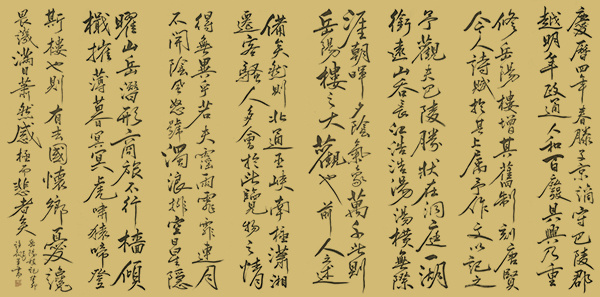 慶曆四年春滕子京謫守巴陵郡
越明年政通人和百廢具興乃重
修岳陽樓增其舊制刻唐賢
今人詩賦於其上屬予作文以記之
予觀夫巴陵勝狀在洞庭一湖
銜遠山吞長江浩浩湯湯橫無際
涯朝暉夕陰氣象萬千此則
岳陽樓之大觀也前人之述
備矣然則北通巫峽南極瀟湘
遷客騷人多會於此覽物之情
得無異乎若夫霪雨霏霏連月
不開陰風怒號濁浪排空日星隱
曜山岳潛形商旅不行檣傾
檝摧薄暮冥冥虎嘯猿啼登
斯樓也則有去國懷鄉憂讒
畏譏滿目蕭然感極而悲者矣
岳陽樓記